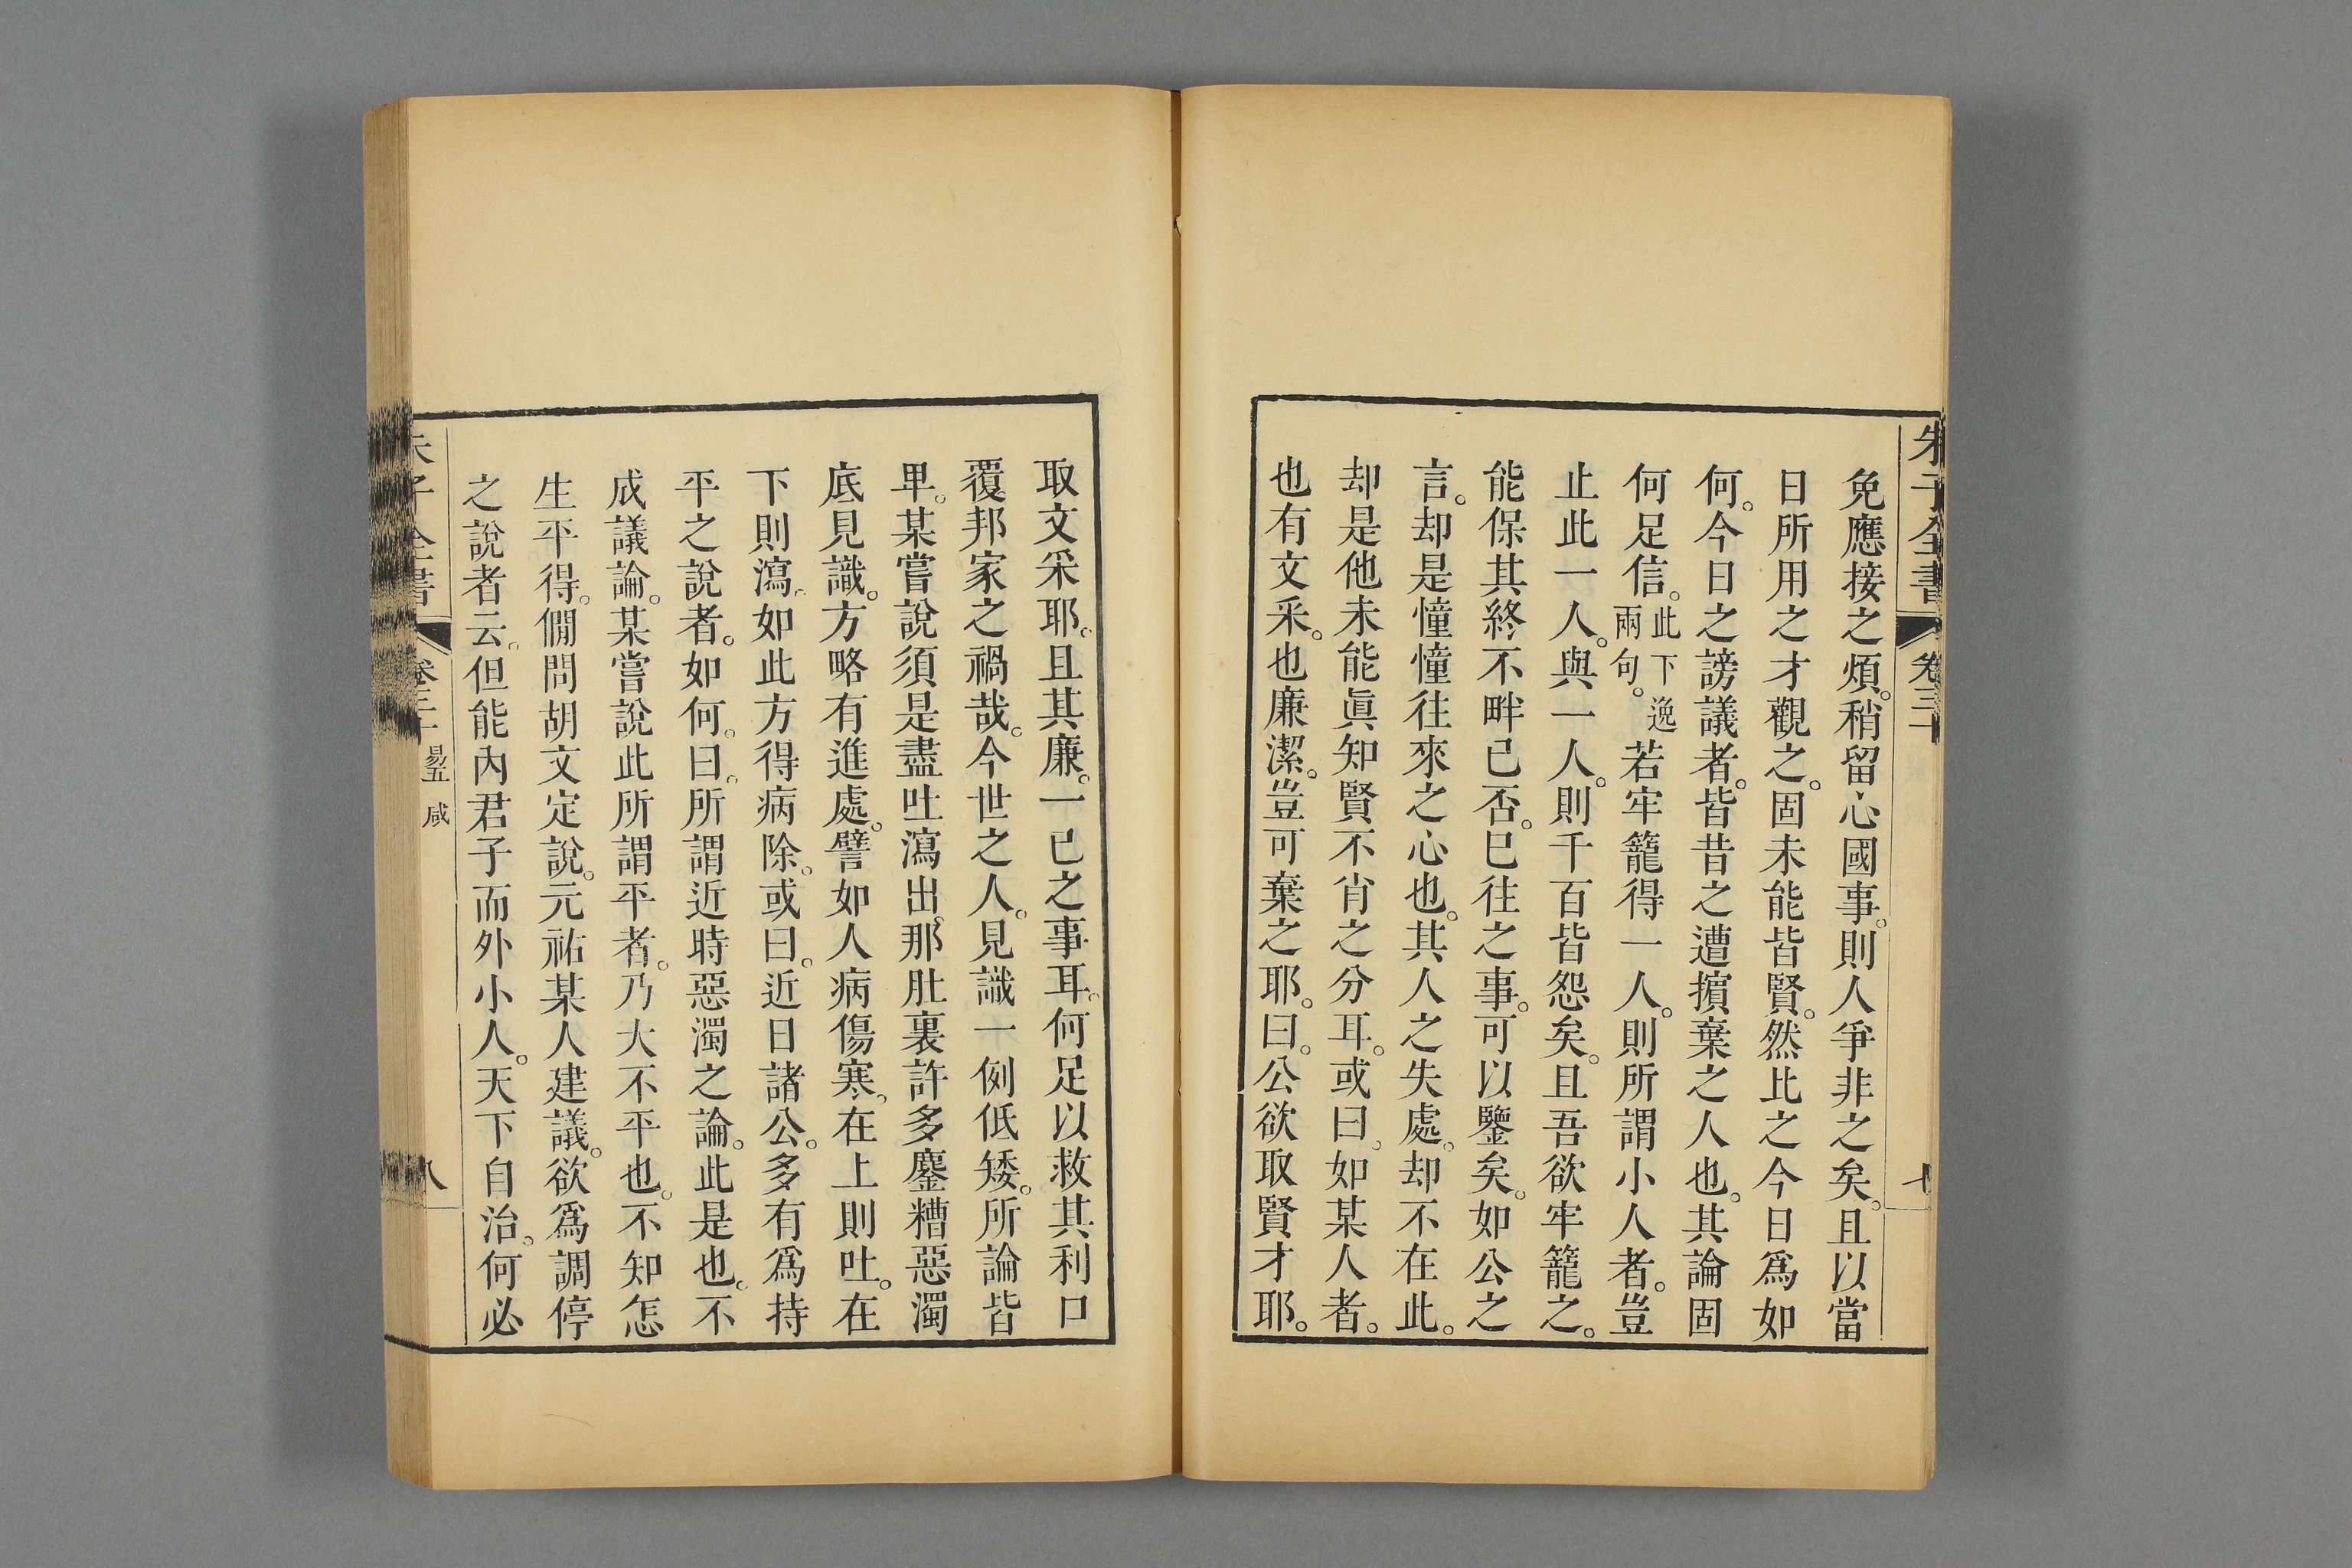 朱子全書
卷三十
七
免應接之煩。稍留心國事。則人爭非之矣。且以當
日所用之才觀之。固未能皆賢。然比之今日爲如
何。今日之謗議者。皆昔之遭擯棄之人也。其論固
何足信。此下逸兩句。若牢籠得一人。則所謂小人者。豈
止此一人。與一人。則千百皆怨矣。且吾欲牢籠之。
能保其終不畔已否。已往之事。可以鑒矣。如公之
言。却是憧憧往來之心也。其人之失處。却不在此。
却是他未能眞知賢不肖之分耳。或曰。如某人者。
也有文采。也廉潔。豈可棄之耶。曰。公欲取賢才耶。
取文采耶。且其廉。一已之事耳。何足以救其利口
覆邦家之禍哉。今世之人。見識一例低矮。所論皆
卑。某嘗說須是盡吐瀉出那肚裏許多鏖糟惡濁
底見識。方略有進處。譬如人病傷寒。在上則吐。在
下則瀉。如此方得病除。或曰。近日諸公。多有爲持
平之說者。如何。曰。所謂近時惡濁之論。此是也。不
成議論。某嘗說此所謂平者。乃大不平也。不知怎
生平得。僩問胡文定說。元祐某人建議。欲爲調停
之說者云。但能內君子而外小人。天下自治。何必
朱子全書
卷三十
易五
咸
八